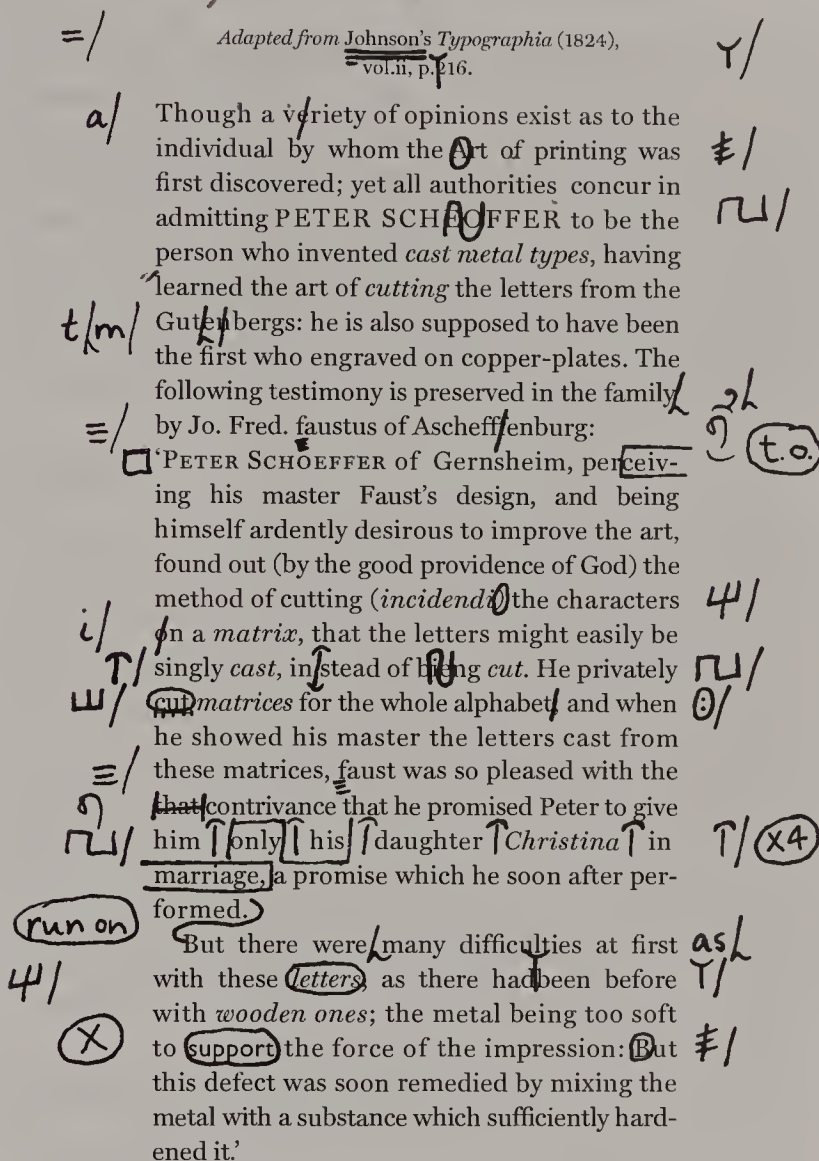 =/ Adapted from Johnson's Typographia (1824), Y/
vol.ii, p.216.
a/ Though a veriety of opinions exist as to the
individual by whom the Art of printing was ≢/
first discovered; yet all authorities concur in
admitting PETER SCHEOFFER to be the
person who invented cast metal types, having
learned the art of cutting the letters from the
t/m/ Gutenbergs: he is also supposed to have been
the first who engraved on copper-plates. The
following testimony is preserved in the family
≡/ by Jo. Fred. faustus of Ascheffenburg: t.o.
‘PETER SCHOEFFER of Gernsheim, perceiv-
ing his master Faust's design, and being
himself ardently desirous to improve the art,
found out (by the good providence of God) the
method of cutting (incidendi) the characters
i/ on a matrix, that the letters might easily be
singly cast, instead of bieng cut. He privately
cut matrices for the whole alphabet, and when
he showed his master the letters cast from
≡/ these matrices, faust was so pleased with the
that contrivance that he promised Peter to give
him only his daughter Christina in X4
marriage, a promise which he soon after per-
formed.
run on
But there were many difficulties at first as
with these letters, as there had been before Y/
with wooden ones; the metal being too soft
X to support the force of the impression: But ≢/
this defect was soon remedied by mixing the
metal with a substance which sufficiently hard-
ened it.’